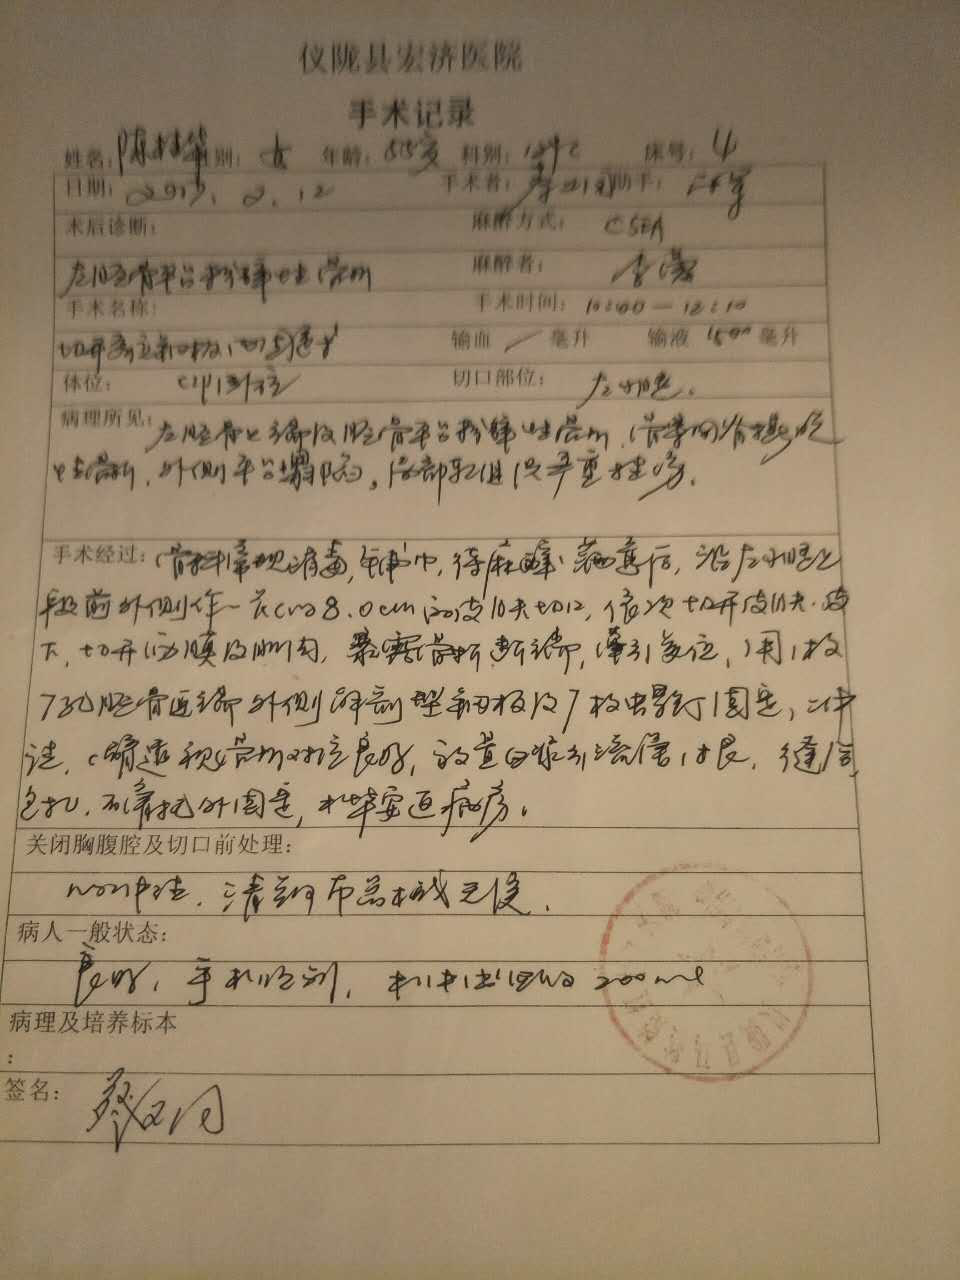 仪陇县宏济医院
手术记录
姓名: 陈 别: 女 年龄: 55岁 科别: 床号: 4
日期: 2.12 手术者: 助手:
术后诊断: 麻醉方式: CSEA
左胫骨平台粉碎性骨折 麻醉者: 李
手术名称: 手术时间: 10:00—12:10
切开复位钢板内固定术 输血 / 毫升 输液 1500 毫升
体位: 仰卧位 切口部位: 左小腿.
病理所见: 左胫骨上端及胫骨平台粉碎性骨折,
性骨折, 外侧平台塌陷。局部软组织严重挫伤.
手术经过: 骨科常规消毒, 铺巾, 待麻醉满意后, 沿左小腿上
段前外侧作一长约8.0cm的皮肤切口, 依次切开皮肤.皮
下, 切开筋膜及肌肉, 暴露骨折断端, 牵引复位, 用1枚
7孔胫骨近端外侧解剖型钢板及7枚螺钉固定,
透视骨折对位良好, 放置 引流管1根, 缝合
包扎. 石膏托外固定, 术毕安返病房.
关闭胸腹腔及切口前处理:
清纱布器械无误.
病人一般状态:
良好, 手术顺利, 术中出血约200ml
病理及培养标本
:
签名: 蔡